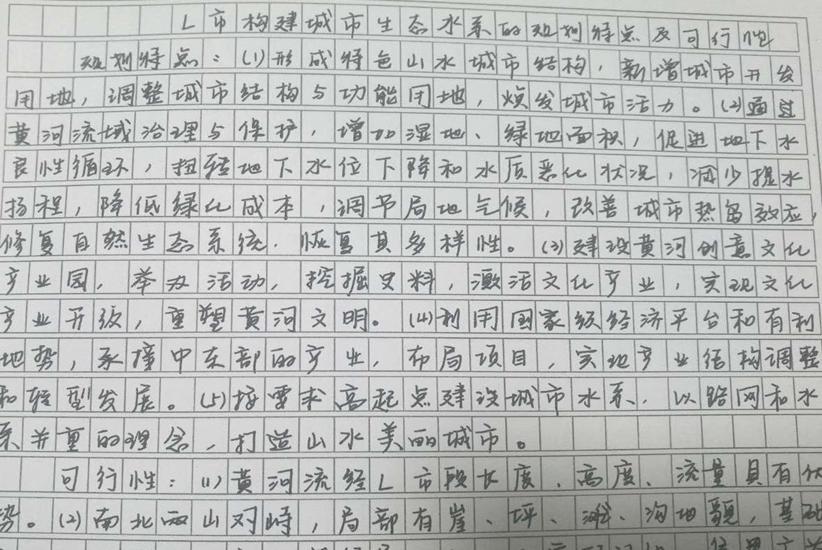 L市构建城市生态水系的规划特点及可行性
规划特点：(1)形成特色山水城市结构，新增城市开发
用地，调整城市结构与功能用地，焕发城市活力。(2)通过
黄河流域治理与保护，增加湿地、绿地面积，促进地下水
良性循环，扭转地下水位下降和水质恶化状况，减少提水
扬程，降低绿化成本，调节局地气候，改善城市热岛效应，
修复自然生态系统，恢复其多样性。(3)建设黄河创意文化
产业园，举办活动，挖掘史料，激活文化产业，实现文化
产业升级，重塑黄河文明。(4)利用国家级经济平台和有利
地势，承接中东部的产业，布局项目，实现产业结构调整
和转型发展。(5)按要求高起点建设城市水系，以路网和水
系并重的理念，打造山水美丽城市。
可行性：(1)黄河流经L市段长度、高度、流量具有优
势。(2)南北两山对峙，局部有崖、坪、滩、沟地貌，基础